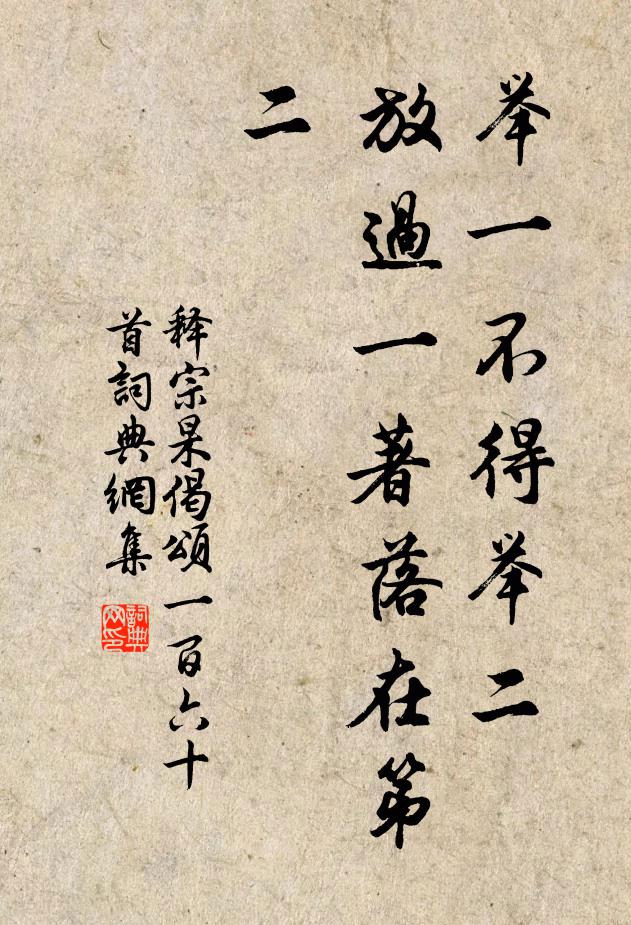 举一不得举二
放過一著落在第
二
释宗杲偈頌一百六十
首詞典網集
詞典
网印